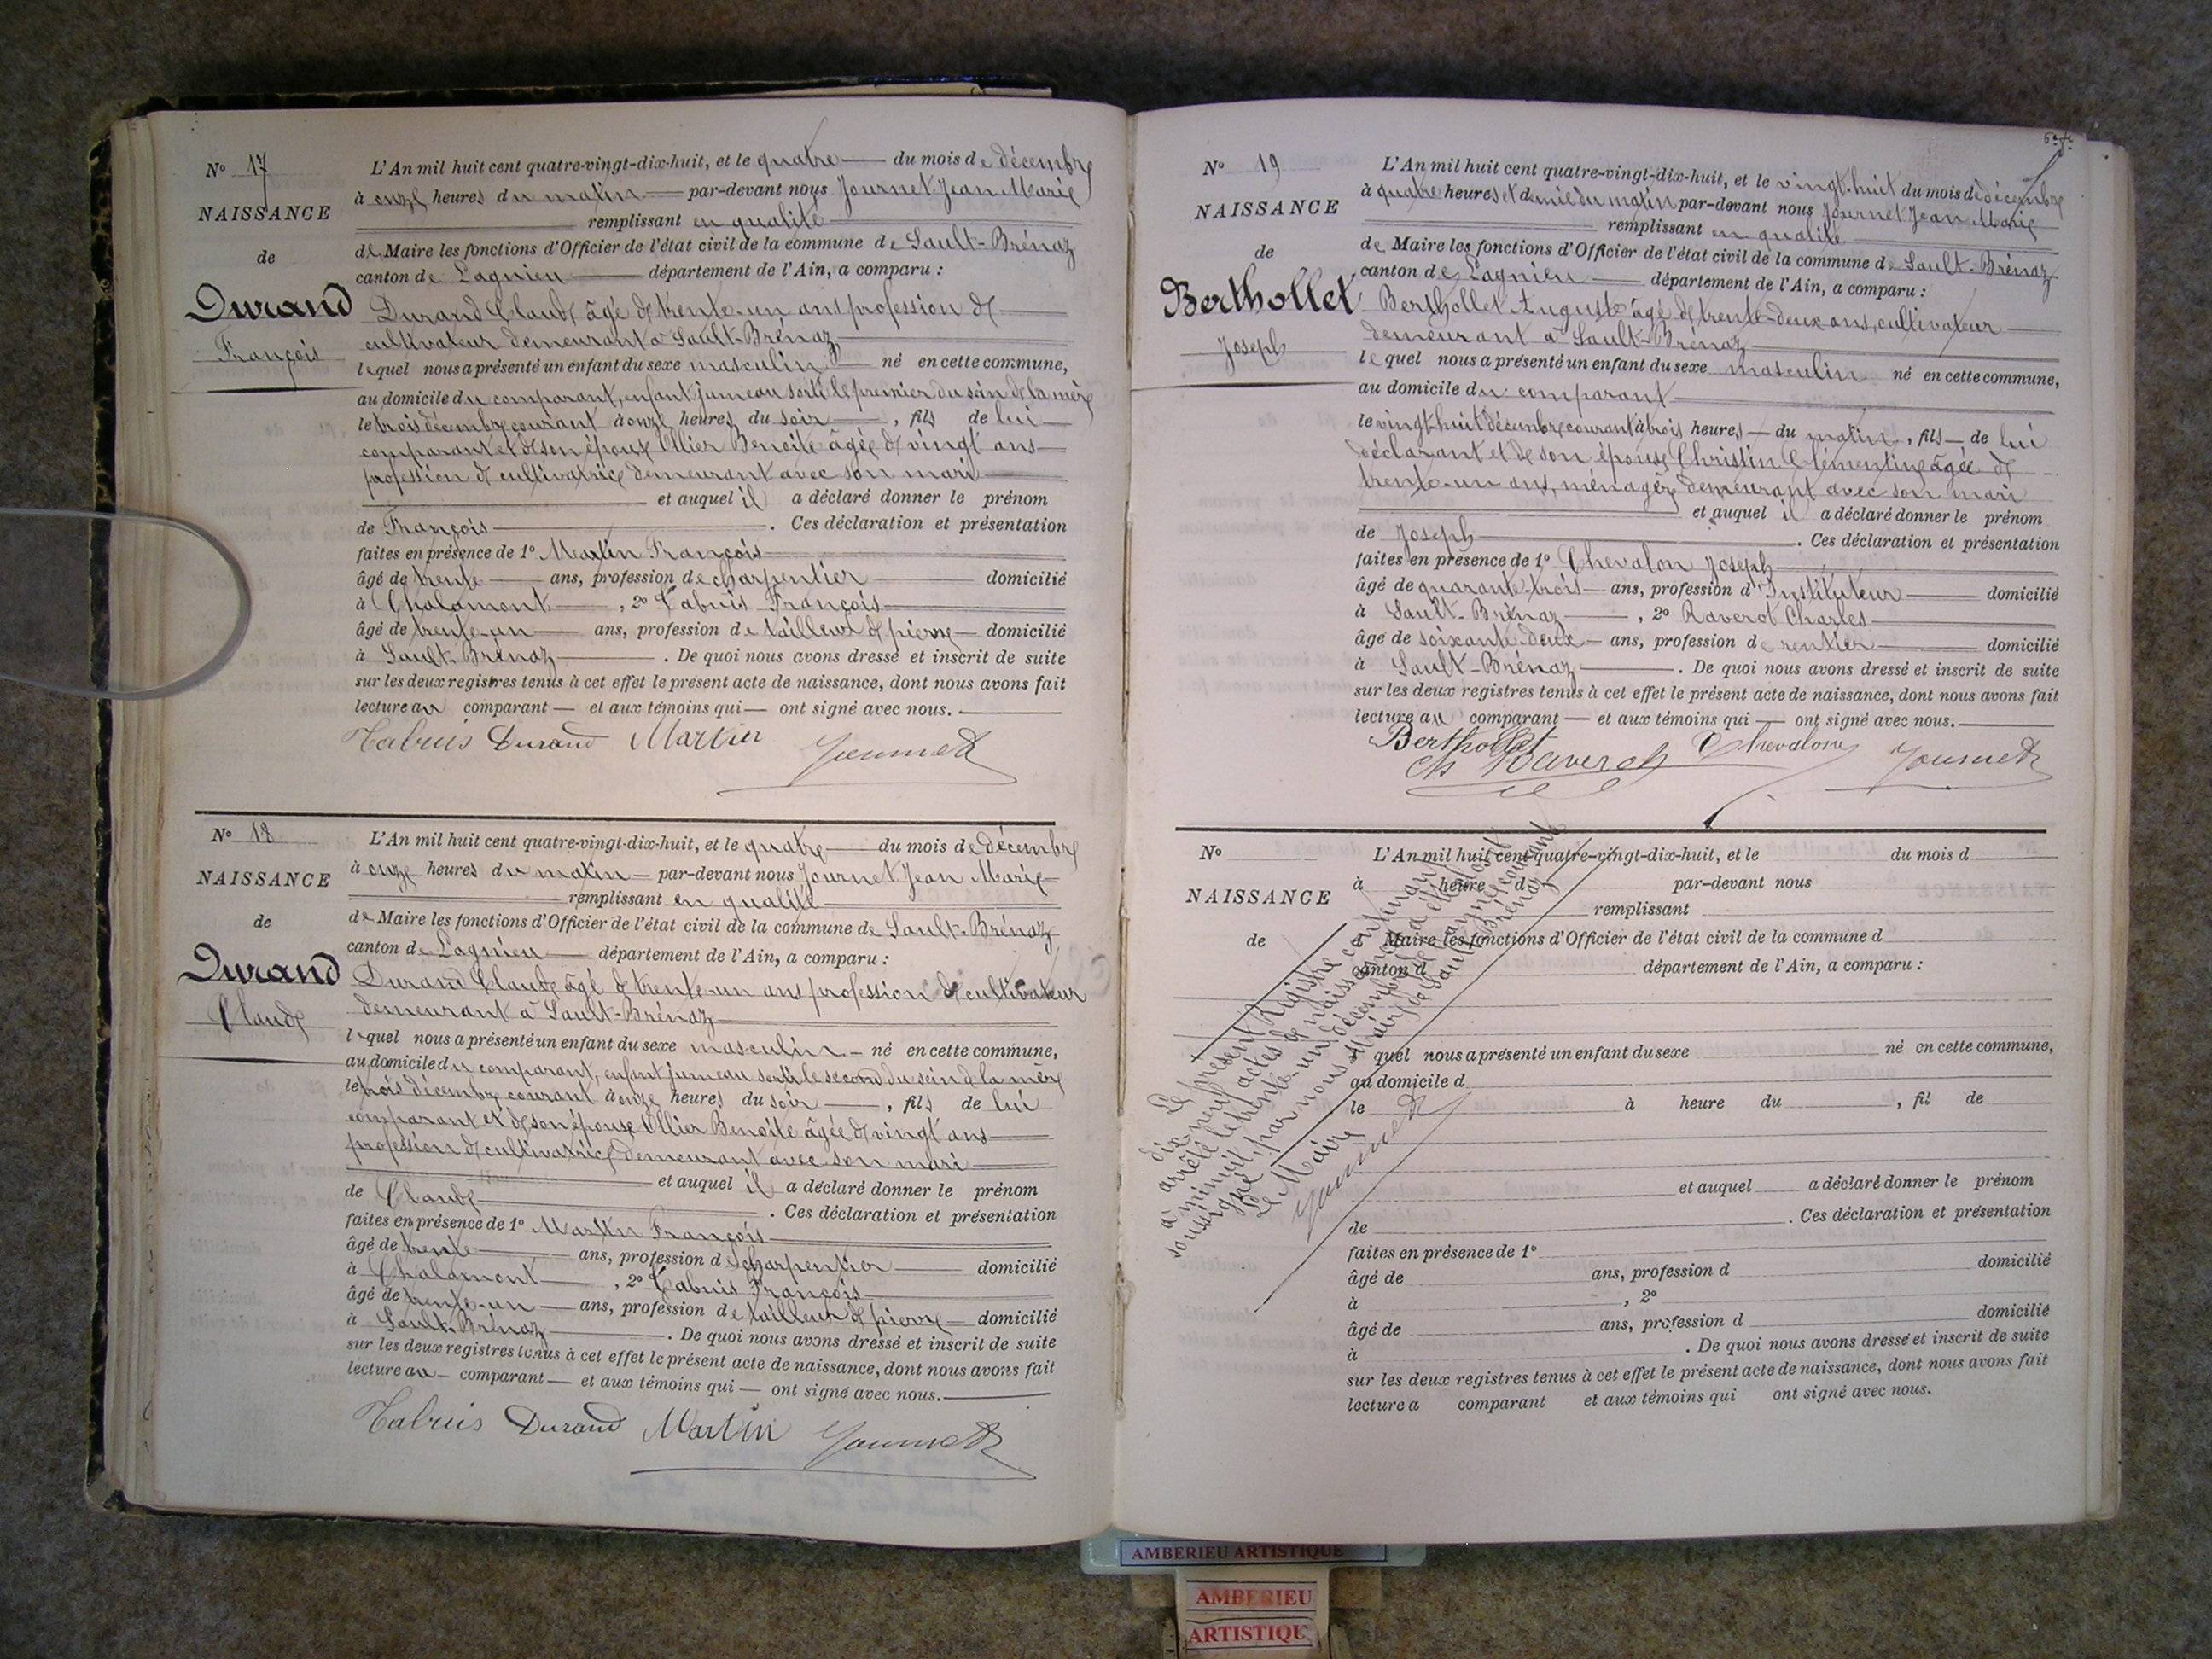 N° 17
NAISSANCE
de
Durand
François
L'An mil huit cent quatre-vingt-dix-huit, et le quatre du mois de décembre
à onze heures du matin par-devant nous Journet Jean Marie
remplissant en qualité
de Maire les fonctions d'Officier de l'état civil de la commune de Sault-Brénaz
canton de Lagnieu département de l'Ain, a comparu :
Durand Claude âgé de trente-un ans profession de
cultivateur demeurant à Sault-Brénaz
lequel nous a présenté un enfant du sexe masculin né en cette commune,
au domicile du comparant, enfant jumeau sorti le premier du sein de la mère
le trois décembre courant à onze heures du soir, fils de lui
comparant et de son épouse Ollier Benoite âgée de vingt ans
profession de cultivatrice demeurant avec son mari
et auquel il a déclaré donner le prénom
de François. Ces déclaration et présentation
faites en présence de 1° Martin François
âgé de trente ans, profession de charpentier domicilié
à Chalamont, 2° Tabuis François
âgé de trente-un ans, profession de tailleur de pierre domicilié
à Sault-Brénaz. De quoi nous avons dressé et inscrit de suite
sur les deux registres tenus à cet effet le présent acte de naissance, dont nous avons fait
lecture au comparant et aux témoins qui ont signé avec nous.
Tabuis Durand Martin Journet
N° 18
NAISSANCE
de
Durand
Claude
L'An mil huit cent quatre-vingt-dix-huit, et le quatre du mois de décembre
à onze heures du matin par-devant nous Journet Jean Marie
remplissant en qualité
de Maire les fonctions d'Officier de l'état civil de la commune de Sault-Brénaz
canton de Lagnieu département de l'Ain, a comparu :
Durand Claude âgé de trente-un ans profession de cultivateur
demeurant à Sault-Brénaz
lequel nous a présenté un enfant du sexe masculin né en cette commune,
au domicile du comparant, enfant jumeau sorti le second du sein de la mère
le trois décembre courant à onze heures du soir, fils de lui
comparant et de son épouse Ollier Benoite âgée de vingt ans
profession de cultivatrice demeurant avec son mari
et auquel il a déclaré donner le prénom
de Claude. Ces déclaration et présentation
faites en présence de 1° Martin François
âgé de trente ans, profession de charpentier domicilié
à Chalamont, 2° Tabuis François
âgé de trente-un ans, profession de tailleur de pierre domicilié
à Sault-Brénaz. De quoi nous avons dressé et inscrit de suite
sur les deux registres tenus à cet effet le présent acte de naissance, dont nous avons fait
lecture au comparant et aux témoins qui ont signé avec nous.
Tabuis Durand Martin Journet
N° 19
NAISSANCE
de
Berthollet
Joseph
L'An mil huit cent quatre-vingt-dix-huit, et le vingt-huit du mois de décembre
à quatre heures et demie du matin par-devant nous Journet Jean Marie
remplissant en qualité
de Maire les fonctions d'Officier de l'état civil de la commune de Sault-Brénaz
canton de Lagnieu département de l'Ain, a comparu :
Berthollet Auguste âgé de trente-deux ans, cultivateur
demeurant à Sault-Brénaz
lequel nous a présenté un enfant du sexe masculin né en cette commune,
au domicile du comparant
le vingt-huit décembre courant à trois heures du matin, fils de lui
déclarant et de son épouse Christin Clémentine âgée de
trente-un ans, ménagère demeurant avec son mari
et auquel il a déclaré donner le prénom
de Joseph. Ces déclaration et présentation
faites en présence de 1° Chevalon Joseph
âgé de quarante-trois ans, profession d'Instituteur domicilié
à Sault-Brénaz, 2° Raverot Charles
âgé de soixante-deux ans, profession de rentier domicilié
à Sault-Brénaz. De quoi nous avons dressé et inscrit de suite
sur les deux registres tenus à cet effet le présent acte de naissance, dont nous avons fait
lecture au comparant et aux témoins qui ont signé avec nous.
Berthollet Chevalon Journet
Ch Raverot
N°
NAISSANCE
de
L'An mil huit cent quatre-vingt-dix-huit, et le du mois d
à heure d par-devant nous
remplissant
d Maire les fonctions d'Officier de l'état civil de la commune d
canton d département de l'Ain, a comparu :
quel nous a présenté un enfant du sexe né en cette commune,
au domicile d
le à heure du, fil de
et auquel a déclaré donner le prénom
de. Ces déclaration et présentation
faites en présence de 1°
âgé de ans, profession d domicilié
à, 2°
âgé de ans, profession d domicilié
à. De quoi nous avons dressé et inscrit de suite
sur les deux registres tenus à cet effet le présent acte de naissance, dont nous avons fait
lecture a comparant et aux témoins qui ont signé avec nous.
Le présent Registre contenant
dix-neuf actes de naissance a été clos et
arrêté le trente-un décembre
à minuit, par nous Maire de Sault-Brénaz
soussigné
Le Maire
Journet
AMBERIEU ARTISTIQUE
AMBERIEU
ARTISTIQU